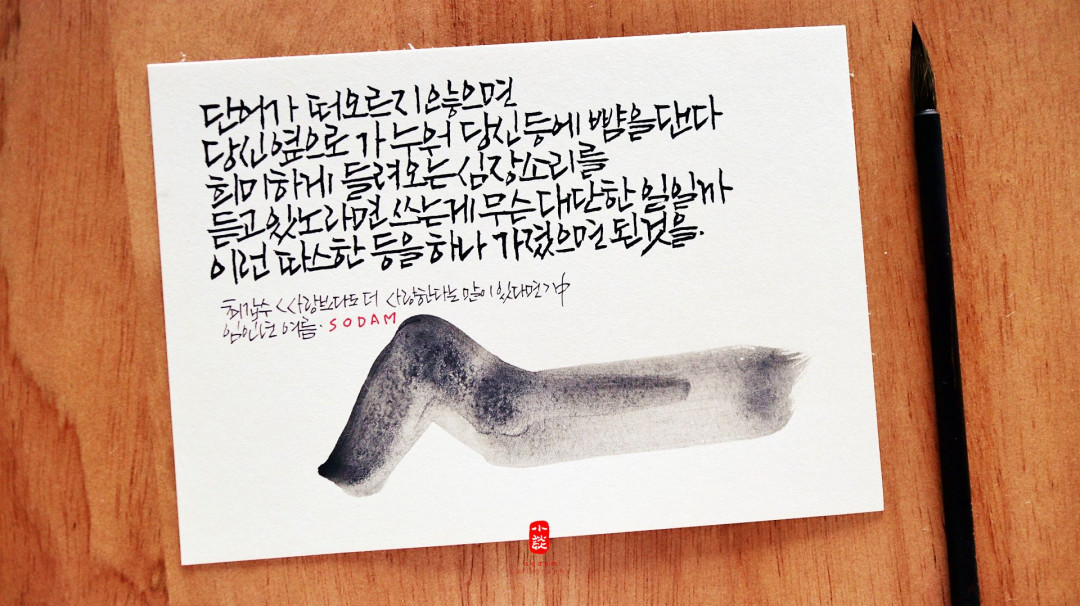 단어가 떠오르지 않으면
당신 옆으로 가 누워 당신 등에 뺨을 댄다
희미하게 들려오는 심장소리를
듣고 있노라면 쓰는게 무슨 대단한 일일까
이런 따스한 등을 하나 가졌으면 된 것을.
최갑수 <사랑보다도 더 사랑한다는 말이 있다면> 中
임인년 여름· SODAM
小談